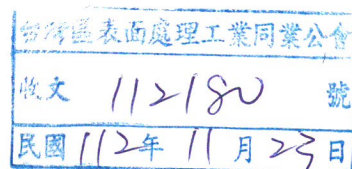 台灣區表面處理工業同業公會
收文 112180 號
民國 112年 11月 23日